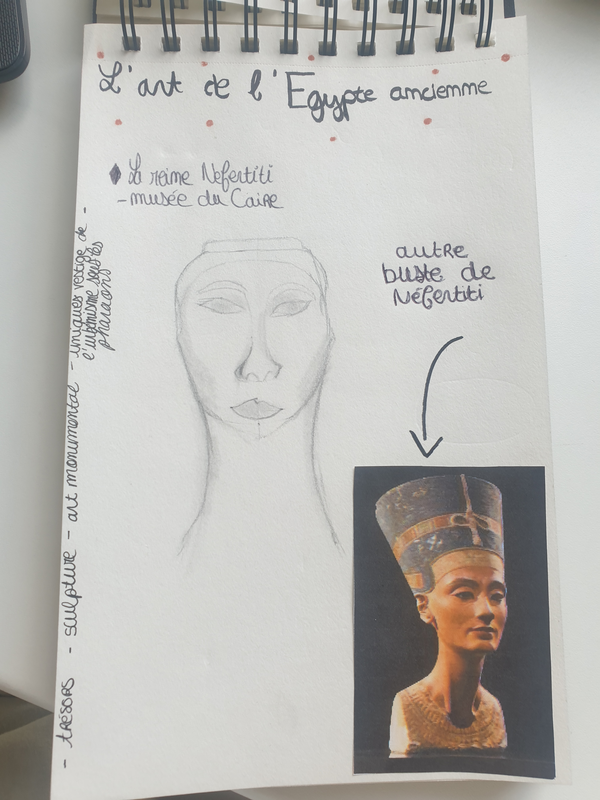 L'art de l'Egypte ancienne
La reine Nefertiti
- musée du Caire
autre
buste de
Néfertiti
- trésors - sculpture - art monumental - uniques vestige de -
l'urbanisme sous les
pharaons